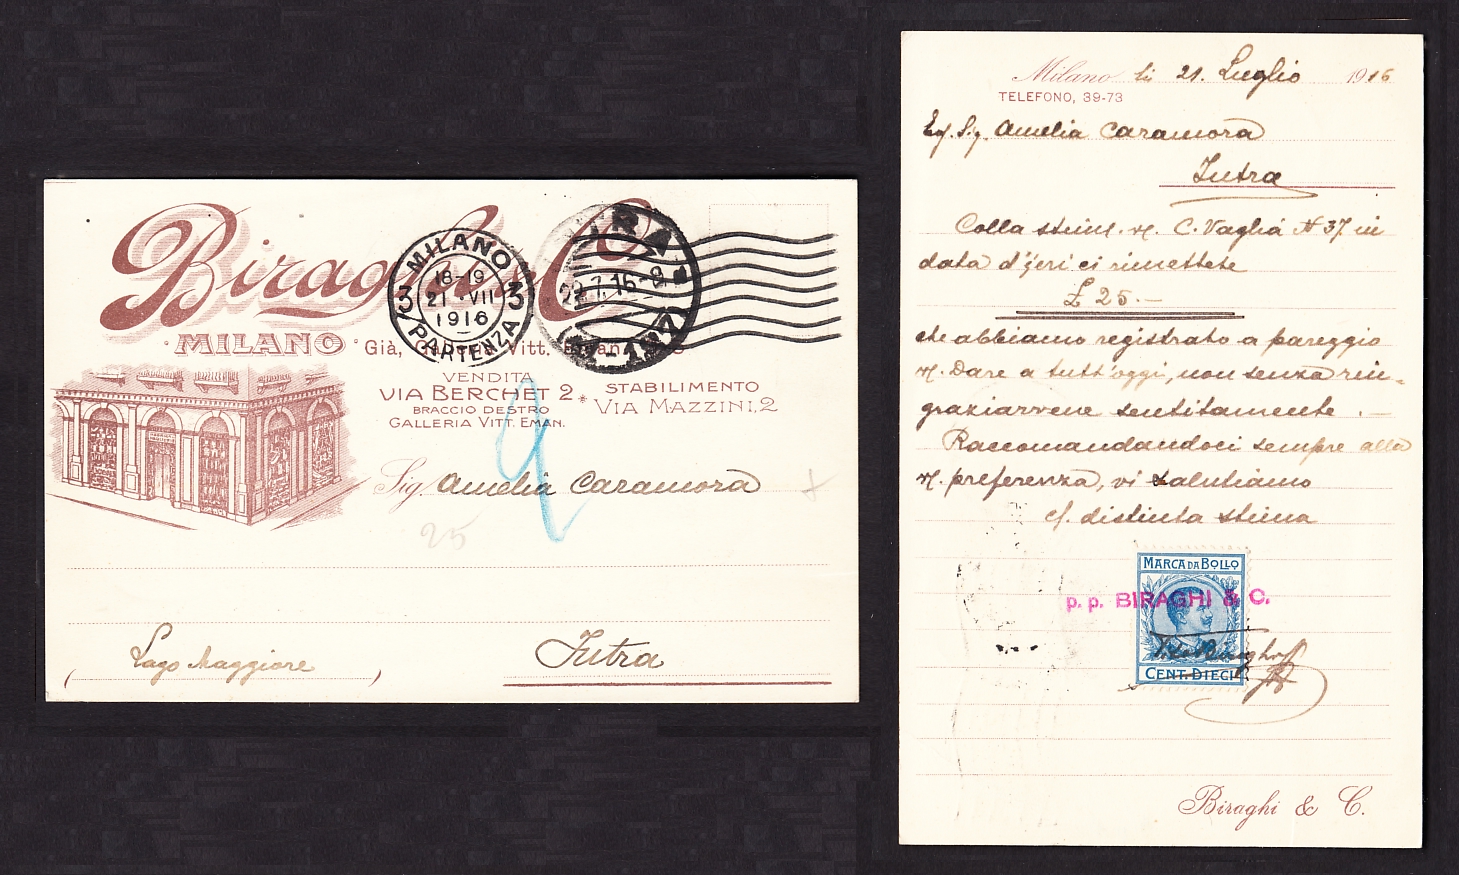 Biraghi & C.
MILANO
Già, Vitt.
VENDITA
VIA BERCHET 2
BRACCIO DESTRO
GALLERIA VITT. EMAN.
*
STABILIMENTO
VIA MAZZINI, 2
MILANO
18-19
21 · VII
1916
3 3
PARTENZA
TRA
22.7.16-8
9
Sig. Amelia Caramora
25
Lago Maggiore
Intra
Milano li 21. Luglio 1916
TELEFONO, 39-73
Eg. Sig. Amelia Caramora
Intra
Colla stim. vs. C. Vaglia N 37 in
data d'jeri ci rimettete
£ 25.-
che abbiamo registrato a pareggio
vs. Dare a tutt'oggi, non senza rin-
graziarvene sentitamente. -
Raccomandandoci sempre alla
vs. preferenza, vi salutiamo
c/. distinta stima
MARCA DA BOLLO
p. p. BIRAGHI & C.
CENT. DIECI
Biraghi & C.